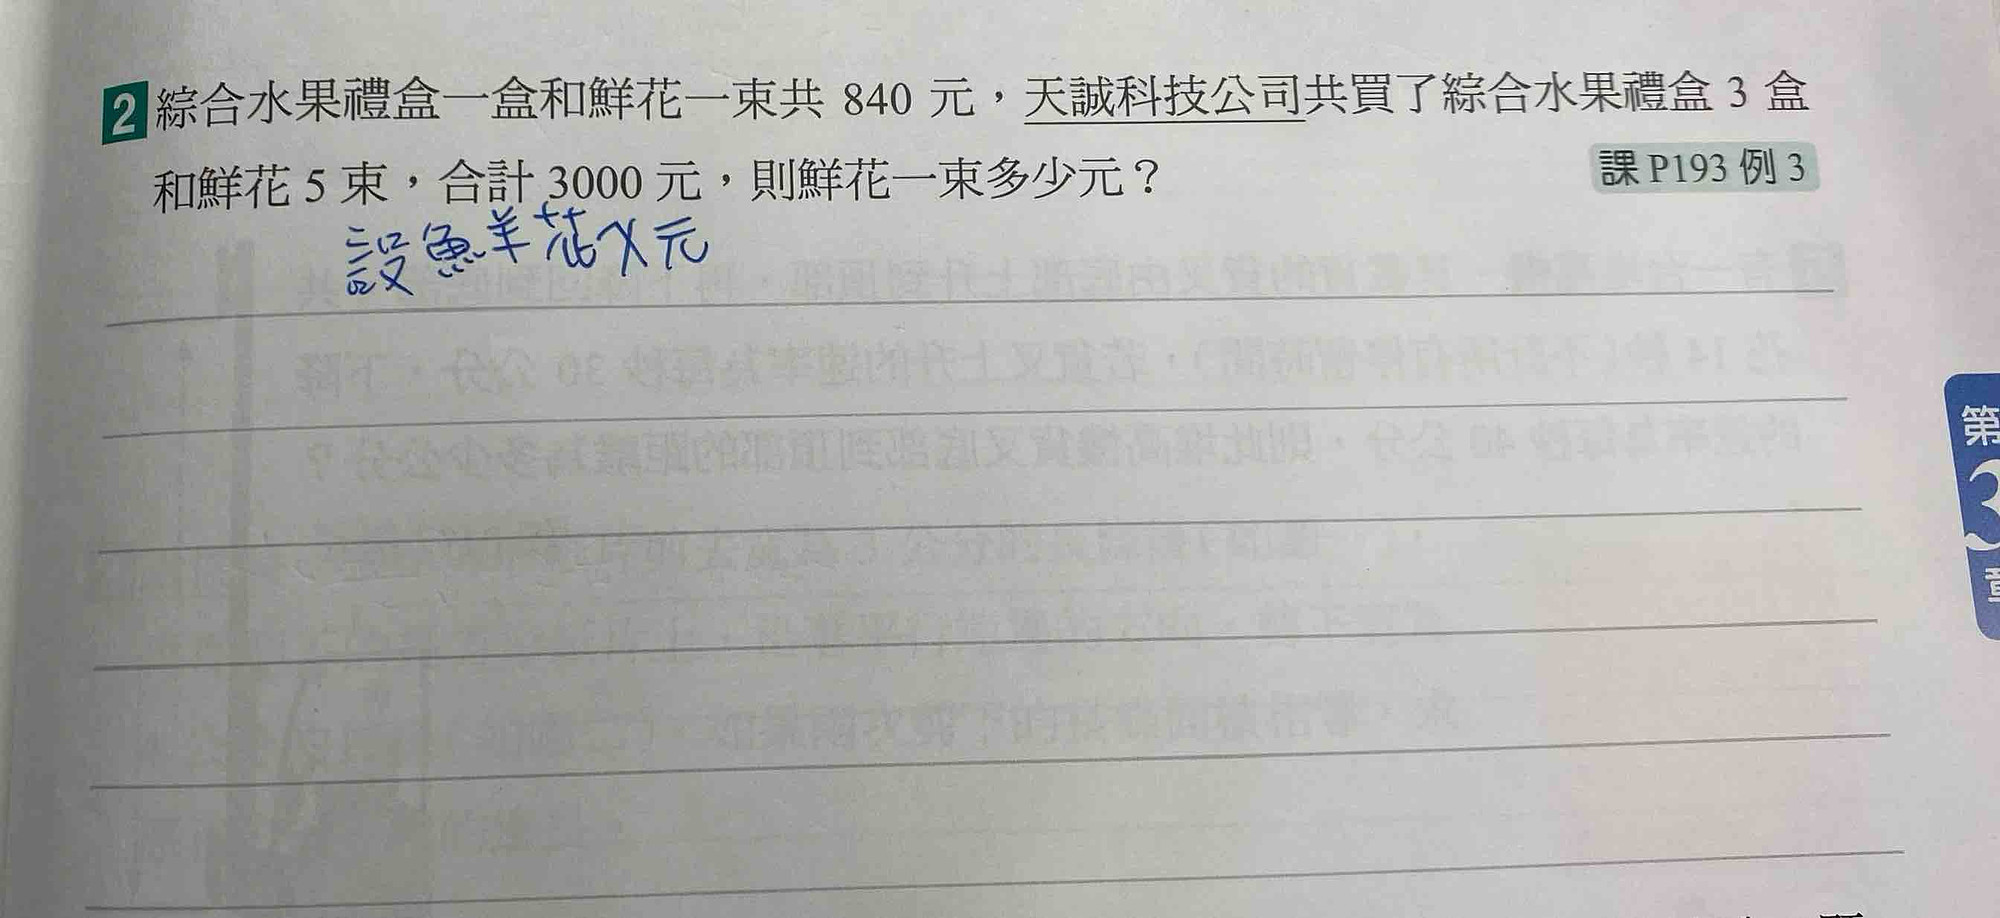 2 綜合水果禮盒一盒和鮮花一束共 840 元，天誠科技公司共買了綜合水果禮盒 3 盒
和鮮花 5 束，合計 3000 元，則鮮花一束多少元？
課 P193 例 3
設鮮花X元
第
3
章